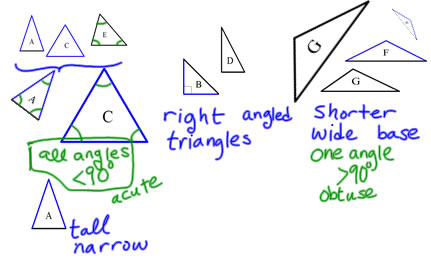 A
C
E
A
C
all angles
<90°
acute
A
tall
narrow
B
D
right angled
triangles
G
F
G
Shorter
wide base
one angle
>90°
obtuse